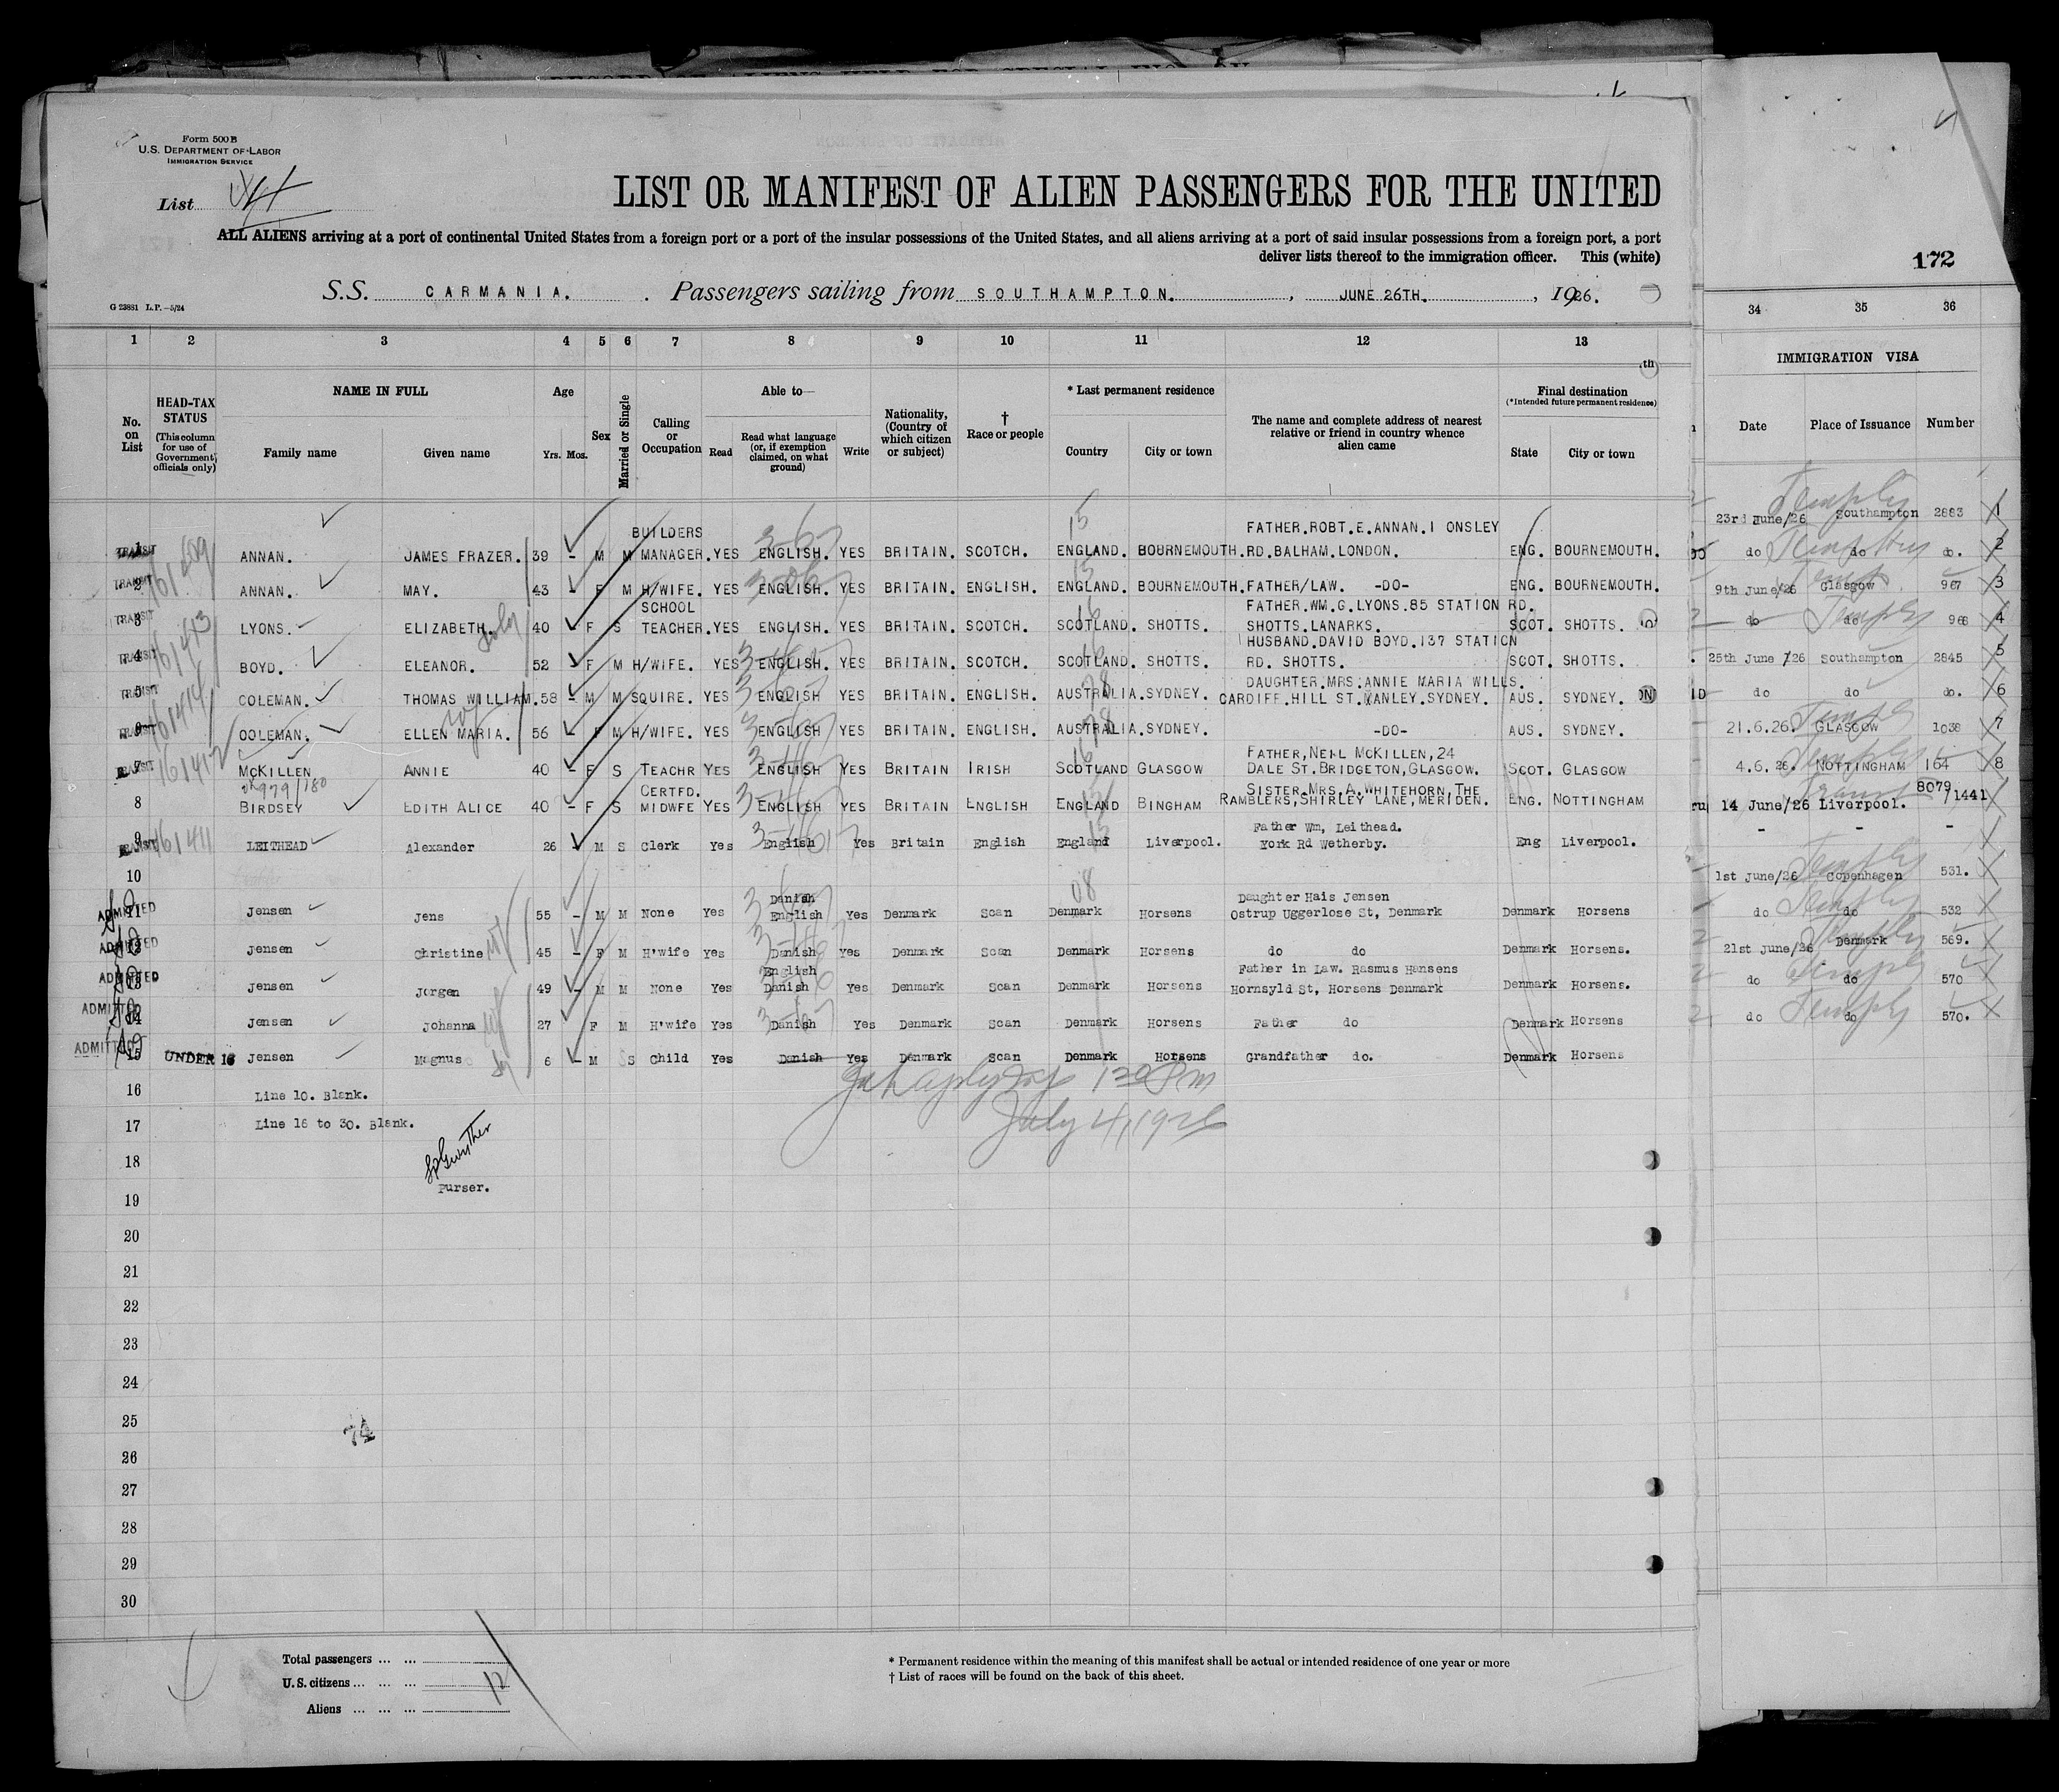 Form 500B
U.S. DEPARTMENT OF LABOR
IMMIGRATION SERVICE
List
LIST OR MANIFEST OF ALIEN PASSENGERS FOR THE UNITED
ALL ALIENS arriving at a port of continental United States from a foreign port or a port of the insular possessions of the United States, and all aliens arriving at a port of said insular possessions from a foreign port, a port
deliver lists thereof to the immigration officer. This (white)
172
S.S. CARMANIA. . Passengers sailing from SOUTHAMPTON. , JUNE 26TH. , 1926.
G 23881 L.P.—5/24
1 2 3 4 5 6 7 8 9 10 11 12 13 34 35 36
No. on List
HEAD-TAX STATUS (This column for use of Government officials only)
NAME IN FULL
Family name Given name
Age
Yrs. Mos.
Sex
Married or Single
Calling or Occupation
Able to—
Read Read what language (or, if exemption claimed, on what ground) Write
Nationality, (Country of which citizen or subject)
† Race or people
* Last permanent residence
Country City or town
The name and complete address of nearest relative or friend in country whence alien came
Final destination
(*Intended future permanent residence)
State City or town
IMMIGRATION VISA
Date Place of Issuance Number
BUILDERS FATHER.ROBT.E.ANNAN.1 ONSLEY 23rd June/26 Southampton 2883 1
TRANSIT 1 ANNAN. JAMES FRAZER. 39 - M M MANAGER. YES ENGLISH. YES BRITAIN. SCOTCH. ENGLAND. BOURNEMOUTH. RD.BALHAM.LONDON. ENG. BOURNEMOUTH. do do do. 2
TRANSIT 2 ANNAN. MAY. 43 F M H/WIFE. YES ENGLISH. YES BRITAIN. ENGLISH. ENGLAND. BOURNEMOUTH. FATHER/LAW. -DO- ENG. BOURNEMOUTH. 9th June/26 Glasgow 967 3
SCHOOL FATHER.WM.G.LYONS.85 STATION RD.
TRANSIT 3 LYONS. ELIZABETH. 40 - F S TEACHER. YES ENGLISH. YES BRITAIN. SCOTCH. SCOTLAND. SHOTTS. SHOTTS.LANARKS. SCOT. SHOTTS. do do 968 4
HUSBAND.DAVID BOYD.137 STATION
TRANSIT 4 BOYD. ELEANOR. 52 F M H/WIFE. YES ENGLISH. YES BRITAIN. SCOTCH. SCOTLAND. SHOTTS. RD. SHOTTS. SCOT. SHOTTS. 25th June /26 Southampton 2845 5
DAUGHTER.MRS.ANNIE MARIA WILLS.
TRANSIT 5 COLEMAN. THOMAS WILLIAM. 58 - M M SQUIRE. YES ENGLISH YES BRITAIN. ENGLISH. AUSTRALIA. SYDNEY. CARDIFF.HILL ST.XANLEY.SYDNEY. AUS. SYDNEY. do do do. 6
TRANSIT 6 COLEMAN. ELLEN MARIA. 56 - F M H/WIFE. YES ENGLISH YES BRITAIN. ENGLISH. AUSTRALIA. SYDNEY. -DO- AUS. SYDNEY. 21.6.26. GLASGOW 1038 7
FATHER, NEIL MCKILLEN, 24
TRANSIT 7 MCKILLEN ANNIE 40 - F S TEACHR YES ENGLISH YES BRITAIN IRISH SCOTLAND GLASGOW DALE ST. BRIDGETON, GLASGOW. SCOT. GLASGOW 4.6.26. NOTTINGHAM 164 8
CERTFD. SISTER, MRS. A. WHITEHORN, THE
8 BIRDSEY EDITH ALICE 40 - F S MIDWFE YES ENGLISH YES BRITAIN ENGLISH ENGLAND BINGHAM RAMBLERS, SHIRLEY LANE, MERIDEN. ENG. NOTTINGHAM 14 June/26 Liverpool. 8079/1441
Father Wm, Leithead.
TRANSIT 9 LEITHEAD Alexander 26 M S Clerk Yes English Yes Britain English England Liverpool. York Rd Wetherby. Eng Liverpool. - - -
10 1st June/26 Copenhagen 531.
Danish Daughter Hais Jensen
ADMITTED 11 Jensen Jens 55 - M M None Yes English Yes Denmark Scan Denmark Horsens Ostrup Uggerlose St, Denmark Denmark Horsens do do 532
ADMITTED 12 Jensen Christine 45 - F M H'wife Yes Danish Yes Denmark Scan Denmark Horsens do do Denmark Horsens. 21st June/26 Denmark 569.
English Father in Law. Rasmus Hansens
ADMITTED 13 Jensen Jorgen 49 - M M None Yes Danish Yes Denmark Scan Denmark Horsens Hornsyld St, Horsens Denmark Denmark Horsens. do do 570
ADMITTED 14 Jensen Johanna 27 F M H'wife Yes Danish Yes Denmark Scan Denmark Horsens Father do Denmark Horsens do do 570.
ADMITTED 15 UNDER 16 Jensen Magnus 6 - M S Child Yes Danish Yes Denmark Scan Denmark Horsens Grandfather do. Denmark Horsens
16 Line 10. Blank.
July 4, 1926
17 Line 16 to 30. Blank.
18
Purser.
19
20
21
22
23
24
25
26
27
28
29
30
Total passengers ... ...
U.S. citizens ... ... ... 12
Aliens ... ... ...
* Permanent residence within the meaning of this manifest shall be actual or intended residence of one year or more
† List of races will be found on the back of this sheet.